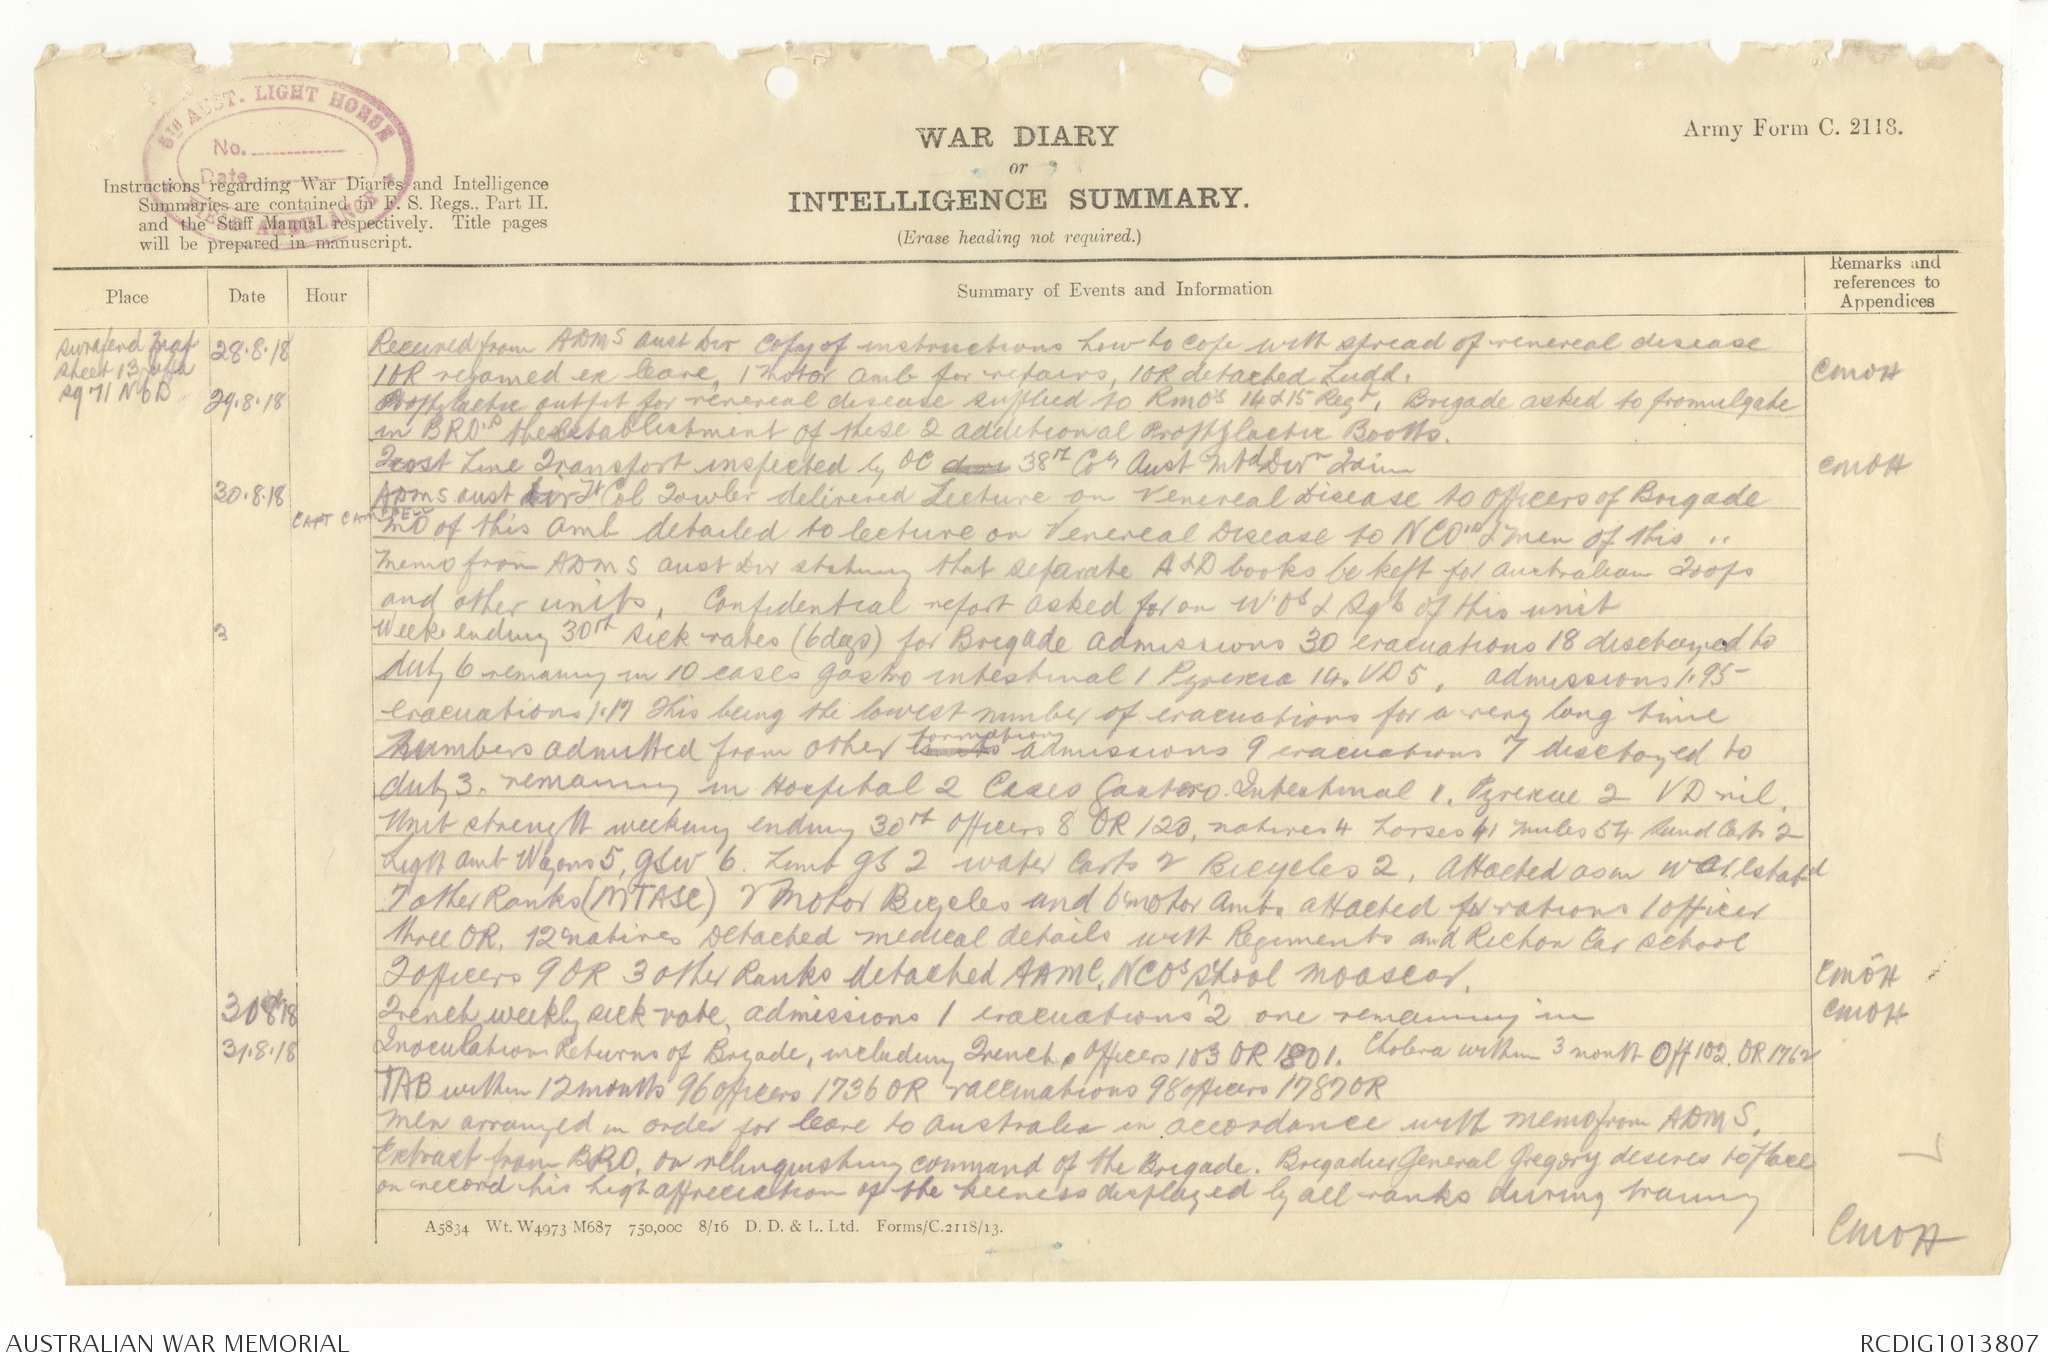 5TH AUST. LIGHT HORSE
No.
Date
FIELD AMBULANCE
Army Form C. 2118.
WAR DIARY
or
INTELLIGENCE SUMMARY.
(Erase heading not required.)
Instructions regarding War Diaries and Intelligence
Summaries are contained in F. S. Regs., Part II.
and the Staff Manual respectively. Title pages
will be prepared in manuscript.
Place
Date
Hour
Summary of Events and Information
Remarks and
references to
Appendices
Surafend
Sheet 13
Sq 71 N6D
28.8.18 Received from ADMS Aust Div Copy of instructions how to cope with spread of venereal disease
1 OR rejoined ex leave, 1 motor Amb for repairs, 1 OR detached Ludd. CMOH
29.8.18 Prophylactic outfit for venereal disease supplied to RMOs 14 & 15 Regt. Brigade asked to promulgate
in BRO's the establishment of these 2 additional Prophylactic Booths.
Line Transport inspected by OC 38th Coy Aust Mtd Divn Train CMOH
30.8.18 ADMS Aust Div Lt Col Fowler delivered Lecture on Venereal Disease to Officers of Brigade
CAPT CAMPBELL
MO of this Amb detailed to lecture on Venereal Disease to NCO's & Men of this "
Memo from ADMS Aust Div stating that separate A & D books be kept for Australian Troops
and other units. Confidential report asked for on W.Os & Sgts of this unit
3 Week ending 30th sick rates (6 days) for Brigade admissions 30 evacuations 18 discharged to
duty 6 remaining in 10 cases gastro intestinal 1 Pyrexia 14. VD 5. admissions 1.95
evacuations 1.17 This being the lowest number of evacuations for a very long time
Numbers admitted from other formations admissions 9 evacuations 7 discharged to
duty 3. remaining in Hospital 2 Cases Gastro Intestinal 1. Pyrexiae 2 VD nil.
Unit strength weeking ending 30th Officers 8 OR 120, natives 4 horses 41 mules 54 Sand Carts 2
Light Amb Wagons 5, GSW 6. Limb GS 2 water Carts 2 Bicycles 2. Attached as in War. Estabd
7 other Ranks (MTASC) 2 Motor Bicycles and 6 motor Ambs attached for rations 1 officer
three OR. 12 natives Detached medical details with Regiments and Richon Car School
2 officers 9 OR 3 other Ranks detached AAMC. NCOs School Moascar. CMOH
30.8.18 French weekly sick rate, admissions 1 evacuations 2 one remaining in CMOH
31.8.18 Inoculation Returns of Brigade, including French. Officers 103 OR 1801. Cholera within 3 month Off 102. OR 1762
TAB within 12 months 96 officers 1736 OR vaccinations 98 officers 1787 OR
Men arranged in order for leave to Australia in accordance with memo from ADMS.
Extract from BRO. on relinquishing command of the Brigade. Brigadier General Gregory desires to place
on record his high appreciation of the keeness displayed by all ranks during training
CMOH
A5834 Wt. W4973 M687 750,000 8/16 D. D. & L. Ltd. Forms/C.2118/13.
AUSTRALIAN WAR MEMORIAL
RCDIG1013807